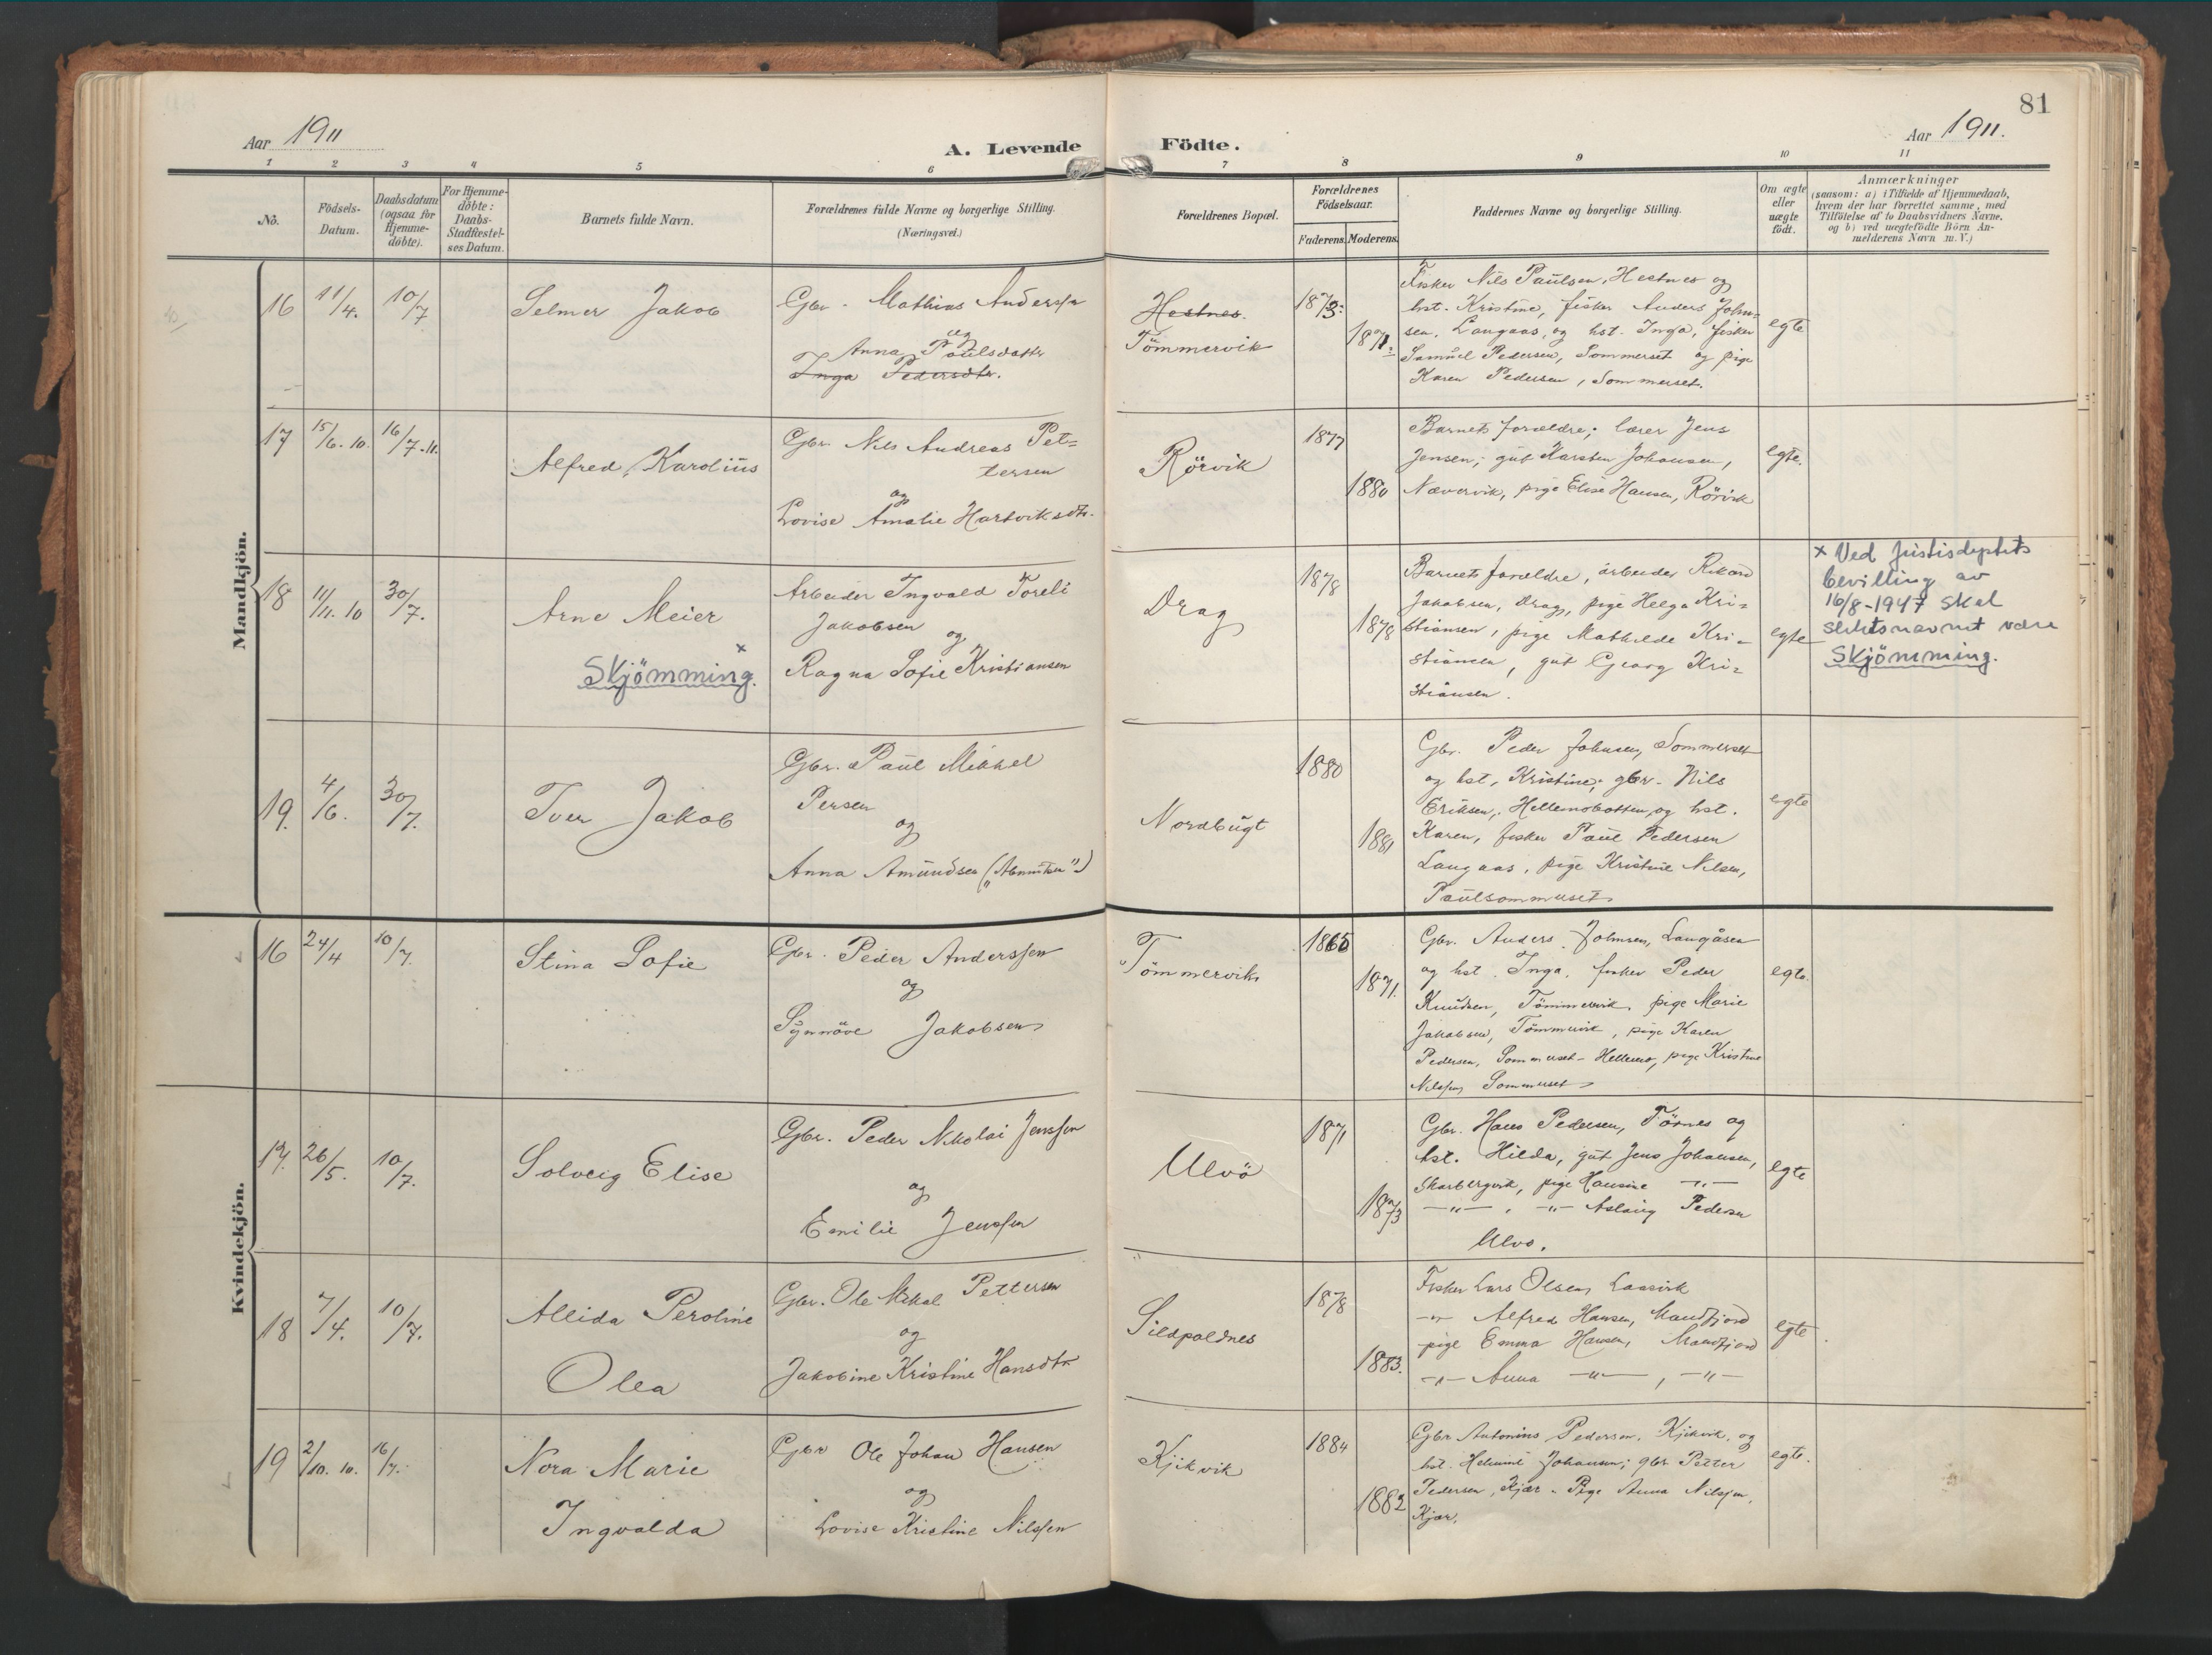 81
Aar 1911
A. Levende
Födte.
Aar 1911.
1 2 3 4 5 6 7 8 9 10 11
No.
Födsels-
Datum.
Daabsdatum
(ogsaa for
Hjemme-
döbte).
For Hjemme-
döbte:
Daabs-
Stadfæstel-
ses Datum.
Barnets fulde Navn.
Forældrenes fulde Navne og borgerlige Stilling.
(Næringsvei.)
Forældrenes Bopæl.
Forældrenes
Födselsaar.
Faderens. Moderens.
Faddernes Navne og borgerlige Stilling.
Om ægte
eller
uægte
födt.
Anmærkninger
(saasom: a) i Tilfælde af Hjemmedaab,
hvem der har forrettet samme, med
Tilföielse af to Daabsvidners Navne,
og b) ved uægtefödte Börn An-
melderens Navn m. V.)
Mandkjön.
16 11/4. 10/7 Selmer Jakob
Gbr. Mathias Anderssen
og
Anna Poulsdatter
Inga Pedersdtr.
Hestnes.
Tömmervik
1873.
1871.
Fisker Nils Paulsen, Hestnes og
hst. Kristine, fisker Anders John-
sen, Langaas, og hst. Inga, fisker
Samuel Pedersen, Sommerset og pige
Karen Pedersen, Sommerset.
egte
17 15/6. 10. 16/7. 11. Alfred Karolius
Gbr. Nils Andreas Pet=
tersen
og
Lovise Amalie Hartviksdtr.
Rörvik
1877
1880
Barnets forældre; lærer Jens
Jensen; gut Karsten Johansen,
Nævervik, pige Elise Hansen, Rörvik
egte.
18 11/11. 10 30/7. Arne Meier
x
Skjömming.
Arbeider Ingvald Toreli
Jakobsen
og
Ragna Sofie Kristiansen
Drag
1878
1878
Barnets forældre, arbeider Rikard
Jakobsen, Drag, pige Helga Kri=
stiansen, pige Mathilde Kri-
stiansen, gut Georg Kri=
stiansen.
egte
x Ved Justisdeptets
bevilling av
16/8-1947 skal
slektsnavnet være
Skjömming.
19. 4/6. 30/7. Iver Jakob
Gbr. Paul Mikkel
Persen
og
Anna Amundsen
Nordbugt
1880
1881
Gbr. Peder Johnsen, Sommerset
og hst. Kristine; gbr. Nils
Eriksen, Hellemobotten, og hst.
Karen, fisker Paul Pedersen
Langaas, pige Kristine Nilsen,
Paulsommerset
egte
Kvindekjön.
16 24/4 10/7. Stina Sofie
Gbr. Peder Anderssen
og
Synnöve Jakobsen
Tömmervik
1865
1871.
Gbr. Anders Johnsen, Langåsen
og hst. Inga, fisker Peder
Knudsen, Tömmervik, pige Marie
Jakobsen, Tömmervik, pige Karen
Pedersen, Sommerset-Hellemo, pige Kristine
Nilssen, Sommerset
egte.
17. 26/5. 10/7. Solveig Elise
Gbr. Peder Nikolai Jenssen
og
Emilie Jenssen
Ulvö
1871
1873
Gbr. Hans Pedersen, Törnes og
hst. Hilda, gut Jens Johansen,
Skarbergvik, pige Hansine -"-
-"-, -"- Aslaug Pedersen
Ulvö.
egte
18 7/4. 10/7. Allida Peroline
Olea
Gbr. Ole Mikal Pettersen
og
Jakobine Kristine Hansdtr
Sildpoldnes
1878
1883.
Fisker Lars Olsen,
-"- Alfred Hansen, Mandfjord
pige Emma Hansen, Mandfjord
-"- Anna -"-, -"-
egte
19 2/10. 10. 16/7. Nora Marie
Ingvalda
Gbr Ole Johan Hansen
og
Lovise Kristine Nilssen
Kjikvik
1884
1882
Gbr Antonius Pedersen, Kjikvik, og
hst. Johansen; gbr Petter
Pedersen, Kjær. Pige Anna Nilssen,
Kjær.
egte.